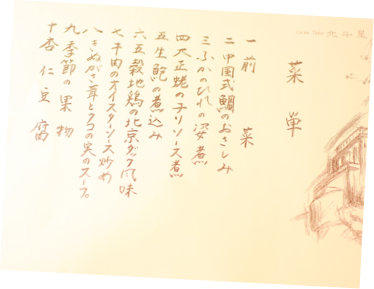 北斗星
菜単
一 前菜
二 中国式鯛のおさしみ
三 ふかのひれの姿煮
四 大正蝦のチリソース煮
五 生鮑の煮込み
六 五穀地鶏の北京ダック風味
七 牛肉のオイスターソース炒め
八 きぬがさ茸とクコの実のスープ
九 季節の果物
十 杏仁豆腐